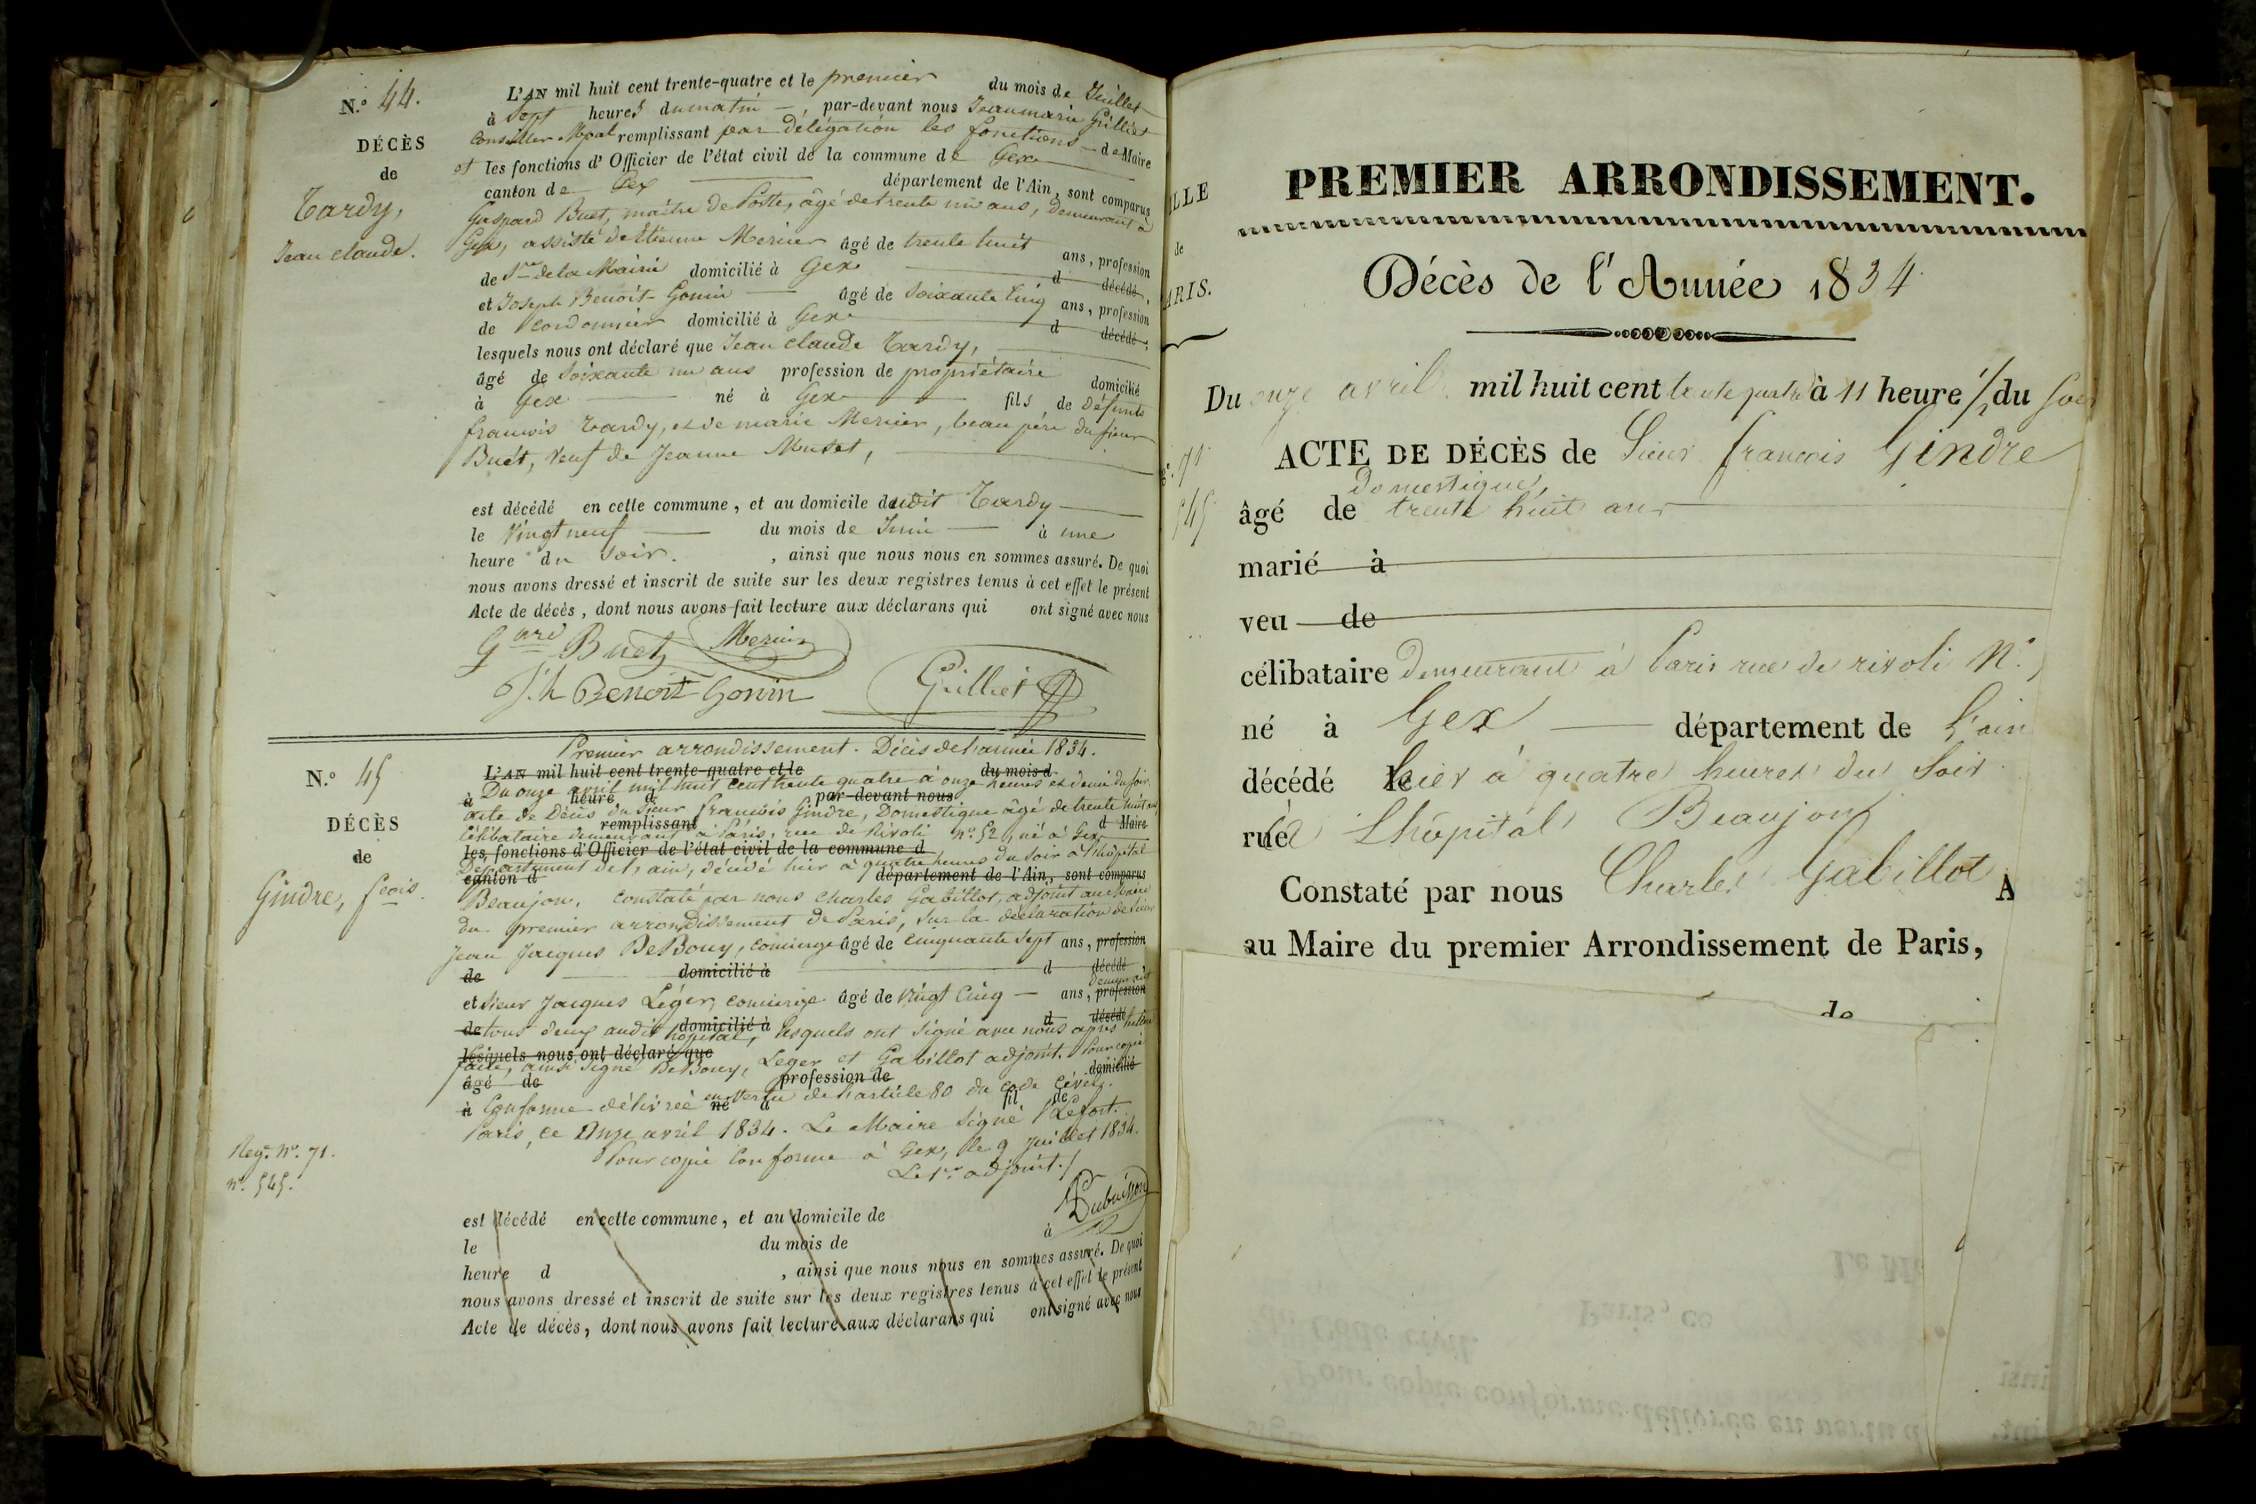 N.º 44.
DÉCÈS
de
Tardy,
Jean claude.
L'AN mil huit cent trente-quatre et le premier du mois de Juillet
à Sept heures du matin —, par-devant nous Jeanmarie Grilliet
Conseiller Mpal remplissant par délégation les fonctions de Maire
et les fonctions d'Officier de l'état civil de la commune de Gex
canton de Gex département de l'Ain, sont comparus
Gaspard Buet, maître de Poste, âgé de trente un ans, demeurant à
Gex, assisté de Etienne Mercier âgé de trente huit ans, profession
de Sre de la Mairie domicilié à Gex d décédé,
et Joseph Benoit-Gonin âgé de Soixante Cinq ans, profession
de Cordonnier domicilié à Gex d décédé,
lesquels nous ont déclaré que Jean claude Tardy,
âgé de Soixante un ans profession de propriétaire domicilié
à Gex né à Gex fils de Défunts
francois Tardy, et de marie Mercier, beau père du sieur
Buet, Veuf de Jeanne Mutet,
est décédé en cette commune, et au domicile dudit Tardy
le Vingt neuf du mois de Juin à une
heure du Soir. , ainsi que nous nous en sommes assuré. De quoi
nous avons dressé et inscrit de suite sur les deux registres tenus à cet effet le présent
Acte de décès, dont nous avons fait lecture aux déclarans qui ont signé avec nous
Buet Mercier
Jh Benoit Gonin Grilliet
N.º 45
DÉCÈS
de
Gindre, fcois.
Premier arrondissement. Décès de l'année 1834.
L'AN mil huit cent trente-quatre et le du mois d
Du onze avril mil huit cent trente quatre à onze heures et demi du soir
à heure d par-devant nous
acte de Décès du Sieur francois Gindre, Domestique âgé de trente huit ans
remplissant d Maire
Célibataire demeurant à Paris, rue de Rivoli Nº 52, né à Gex
les fonctions d'Officier de l'état civil de la commune d
Département de l'ain, décédé hier à quatre heures du Soir à l'hôpital
canton d département de l'Ain, sont comparus
Beaujon. Constaté par nous Charles Gabillot, adjoint au Maire
du premier arrondissement de Paris, Sur la déclaration de Sieur
Jean Jacques DeBouy, Concierge âgé de Cinquante Sept ans, profession
de domicilié à d décédé
demeurant
et Sieur Jacques Léger, concierge âgé de vingt Cinq — ans, profession
de domicilié à d décédé
tous deux audit hôpital, lesquels ont Signé avec nous après lecture
lesquels nous ont déclaré que
faite, ainsi signé DeBouy, Leger et Gabillot adjoint. Pour copie
âgé de profession de domicilié
à né à fil de
Conforme délivrée en Vertu de l'article 80 du code Civil.
Paris, ce Onze avril 1834. Le Maire Signé Lefort.
Pour copie Conforme à Gex, le 9 Juillet 1834.
Le 1er adjoint./
Dubuisson
Reg. Nº. 71.
nº. 545.
est décédé en cette commune, et au domicile de
le du mois de à
heure d , ainsi que nous nous en sommes assuré. De quoi
nous avons dressé et inscrit de suite sur les deux registres tenus à cet effet le présent
Acte de décès, dont nous avons fait lecture aux déclarans qui ont signé avec nous
ILLE
de
ARIS.
71
545
PREMIER ARRONDISSEMENT.
Décès de l'Année 1834.
Du onze avril mil huit cent trente quatre à 11 heure 1/2 du Soir
ACTE DE DÉCÈS de Sieur francois Gindre
domestique,
âgé de trente huit ans
marié à
veu de
célibataire demeurant à Paris rue de rivoli Nº
né à Gex département de L'ain
décédé hier à quatre heures du Soir
rue à Lhôpital Beaujon
Constaté par nous Charles Gabillot A
au Maire du premier Arrondissement de Paris,
de
Le M
Paris, ce
du Code civil.
Pour copie conforme délivrée en vertu d